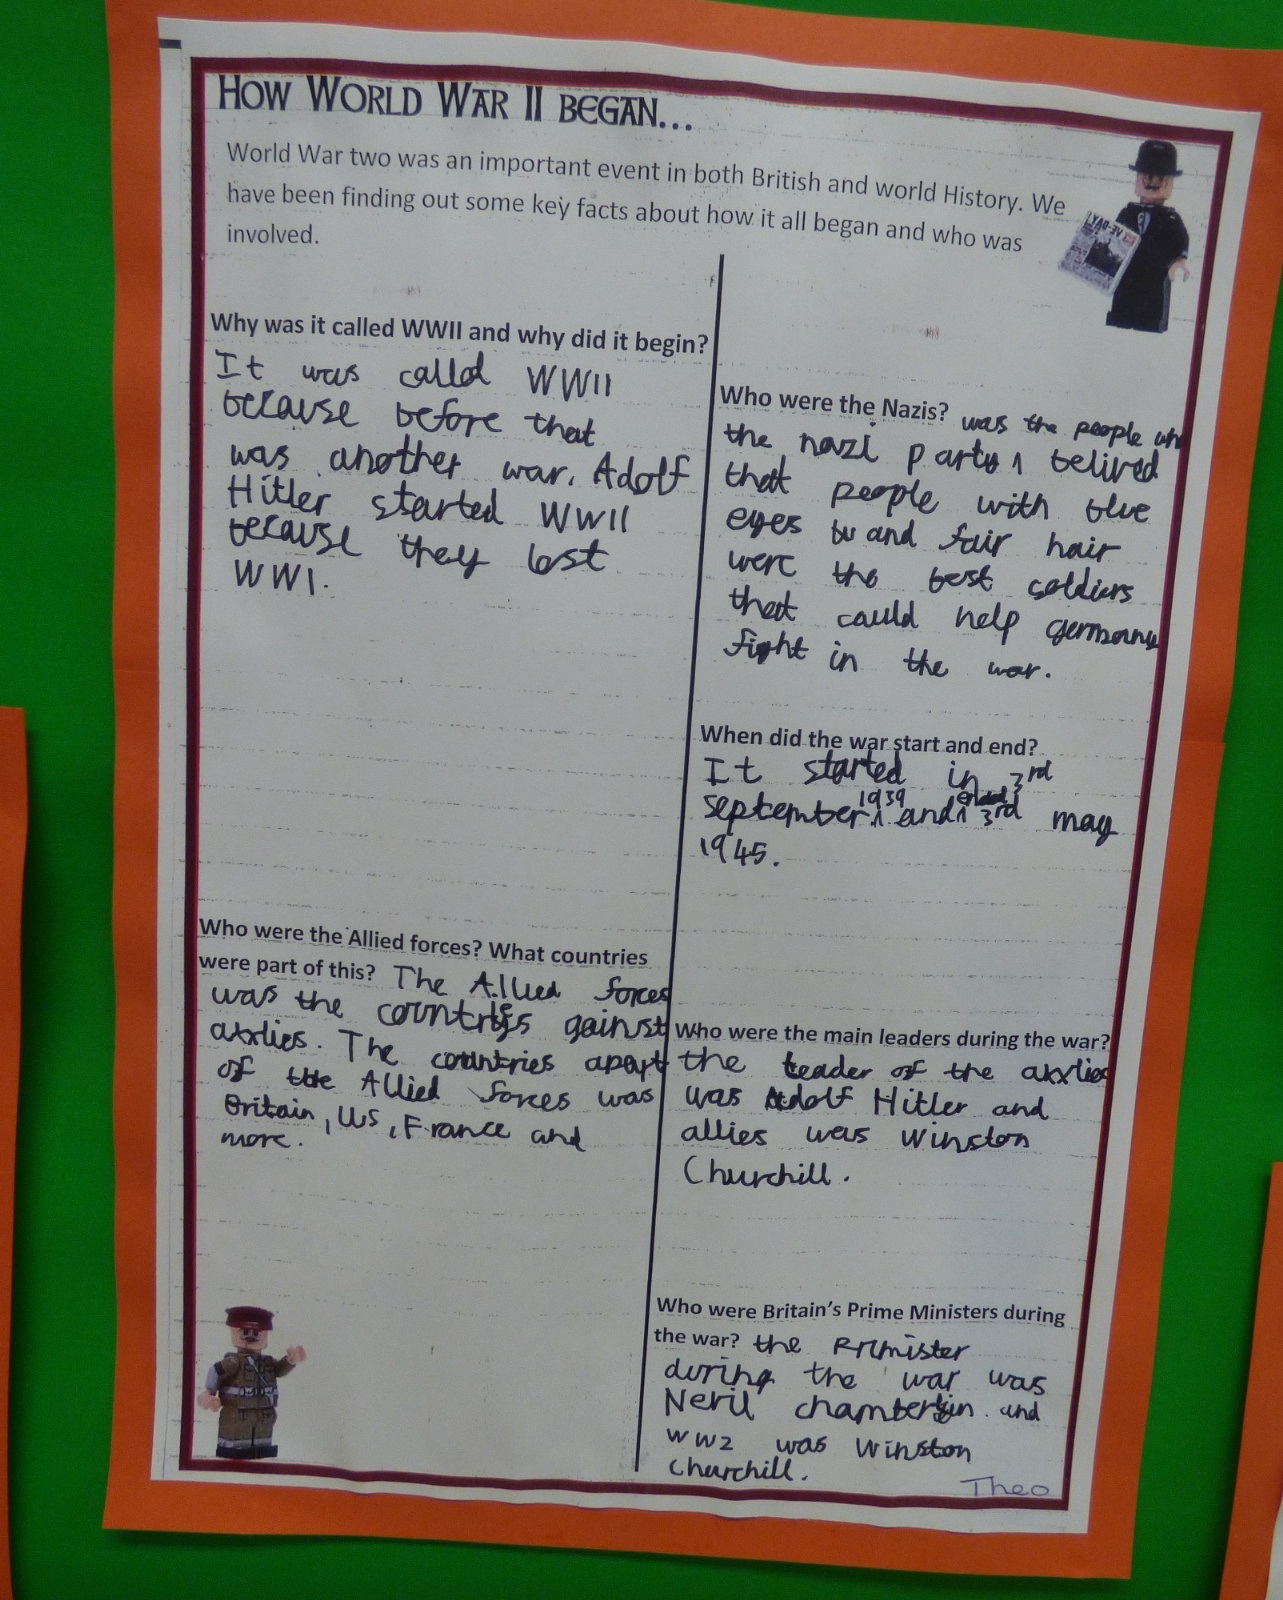 HOW WORLD WAR II BEGAN...
World War two was an important event in both British and world History. We
have been finding out some key facts about how it all began and who was
involved.
Why was it called WWII and why did it begin?
It was called WWII
because before that
was another war. Adolf
Hitler started WWII
because they lost
WW1.
Who were the Allied forces? What countries
were part of this? The Allied forces
was the countries gainst
axxlies. The countries apart
of the Allied forces was
Britain, US, France and
more.
Who were the Nazis? was the people wh
the nazi party belived
that people with blue
eyes and fair hair
were the best soldiers
that could help germany
fight in the war.
When did the war start and end?
It started in 3rd
september 1939 and ended 3rd may
1945.
Who were the main leaders during the war?
the leader of the axxlies
was Adolf Hitler and
allies was Winston
Churchill.
Who were Britain's Prime Ministers during
the war? the
during the war was
Nevil chamberlain and
WW2 was Winston
Churchill.
Theo
VE-DAY!